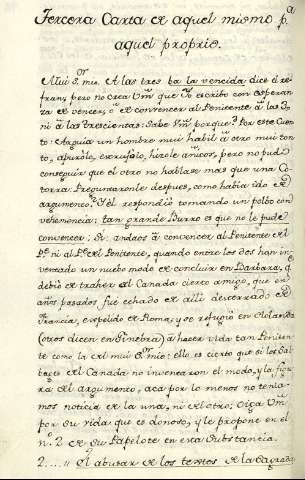 Tercera Carta de aquel mismo p.ª
aquel proprio.
Mui S.r mio. A las tres ba la vencida dice el re-
fran; pero no crea Vm que Yo escribo con esperan-
za de vencer, o de convencer al Penitente a las 3,
ni à las trescientas: Sabe Vm porque? Por este Cuen-
to: Arguia un hombre mui habil à otro mui ton-
to, apuróle, hizole pero no pudo
conseguir que el otro no hablase mas que una Co-
torra: Preguntaronle despues, como habia ido de
argumento? Y él respondió tomando un polbo con
vehemencia: tan grande Burro es que no le pude
convencer. Si andaos à convencer al Penitente del
P.e ni al P.e del Penitente, quando entre los dos han in-
ventado un nuebo modo de concluir en Barbara, q.
debió de traher del Canada cierto amigo, que en
años pasados fue echado de alli desterrado de
Francia, expelido de Roma; y se refugió en Holanda
(otros dicen en Ginebra) à hacer vida tan Peniten-
te como la del mui P. mio: ello es cierto que si los Bar-
baros del Canada no inventaron el modo, y la figu-
ra del argumento, aca por lo menos no tenia-
mos noticia de la una, ni del otro; Oiga Vm
por su vida que es donoso, y le propone en el
n.º 2 de su Papelote en esta Substancia.
2.... El abusar de los textos de la Sagrada